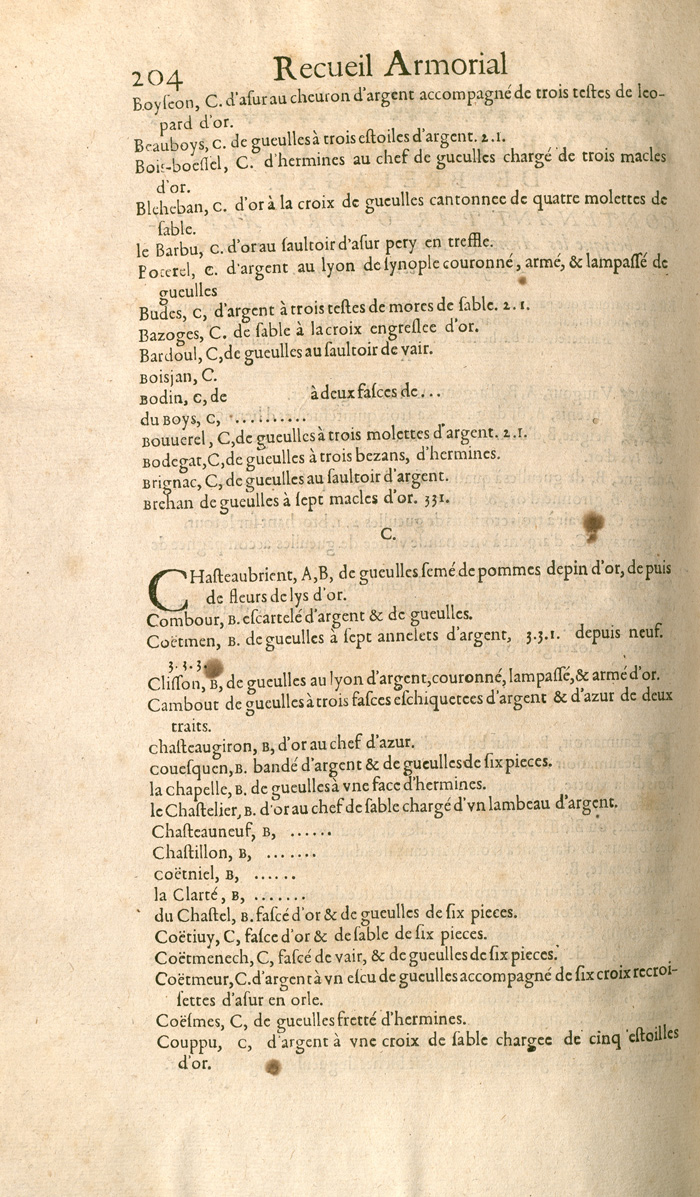 204 Recueil Armorial
Boyſeon, C. d'aſur au cheuron d'argent accompagné de trois teſtes de leo-
pard d'or.
Beauboys, C. de gueulles à trois eſtoiles d'argent. 2.1.
Bois-boeſſel, C. d'hermines au chef de gueulles chargé de trois macles
d'or.
Bleheban, C. d'or à la croix de gueulles cantonnee de quatre molettes de
ſable.
le Barbu, C. d'or au ſaultoir d'aſur pery en treffle.
Poterel, C. d'argent au lyon de ſynople couronné, armé, & lampaſſé de
gueulles
Budes, C, d'argent à trois teſtes de mores de ſable. 2.1.
Bazoges, C. de ſable à la croix engreſlee d'or.
Bardoul, C, de gueulles au ſaultoir de vair.
Boisjan, C.
Bodin, C, de à deux faſces de...
du Boys, C, ..........
Bouuerel, C, de gueulles à trois molettes d'argent. 2.1.
Bodegat, C, de gueulles à trois bezans, d'hermines.
Brignac, C, de gueulles au ſaultoir d'argent.
Brehan de gueulles à ſept macles d'or. 331.
C.
CHaſteaubrient, A, B, de gueulles ſemé de pommes de pin d'or, de puis
de fleurs de lys d'or.
Combour, B. eſcartelé d'argent & de gueulles.
Coëtmen, B. de gueulles à ſept annelets d'argent, 3.3.1. depuis neuf.
3.3.3.
Cliſſon, B, de gueulles au lyon d'argent, couronné, lampaſſé, & armé d'or.
Cambout de gueulles à trois faſces eſchiquetees d'argent & d'azur de deux
traits.
chaſteaugiron, B, d'or au chef d'azur.
coueſquen, B. bandé d'argent & de gueulles de ſix pieces.
la chapelle, B. de gueulles à vne face d'hermines.
le Chaſtelier, B. d'or au chef de ſable chargé d'vn lambeau d'argent.
Chaſteauneuf, B, ......
Chaſtillon, B, .......
coëtniel, B, ......
la Clarté, B, .......
du Chaſtel, B. faſcé d'or & de gueulles de ſix pieces.
Coëtiuy, C, faſce d'or & de ſable de ſix pieces.
Coëtmenech, C, faſcé de vair, & de gueulles de ſix pieces.
Coëtmeur, C. d'argent à vn eſcu de gueulles accompagné de ſix croix recroi-
ſettes d'aſur en orle.
Coëſmes, C, de gueulles fretté d'hermines.
Couppu, C, d'argent à vne croix de ſable chargee de cinq eſtoilles
d'or.